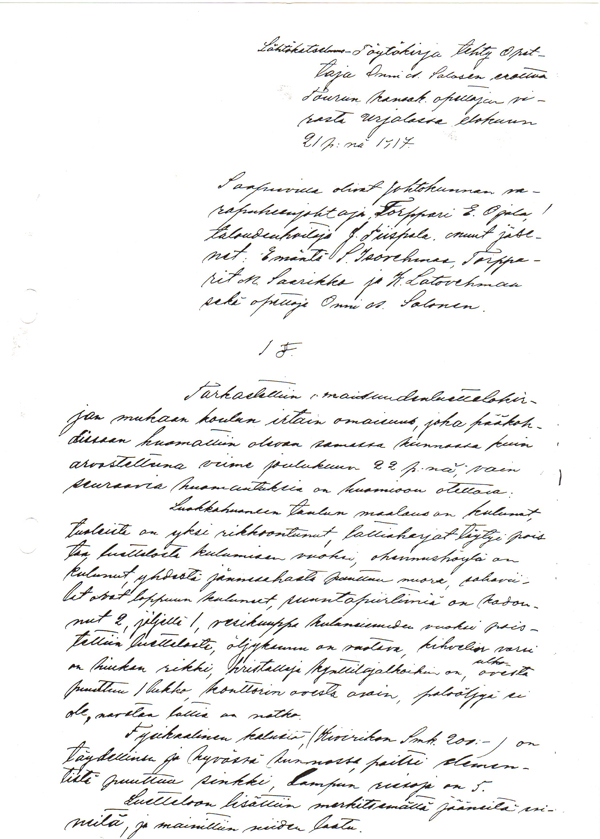 Lähtökatselmus-Pöytäkirja tehty Opet-
taja Onni A. Salosen erottua
Tourun kansak. opettajan vi-
rasta Urjalassa elokuun
21 p:nä 1917.
Saapuvilla olivat Johtokunnan va-
rapuheenjohtaja, Torppari E. Ojala,
taloudenhoitaja J. Piispala, muut jäse-
net: Emäntä S. Isovehmaa, Torppa-
rit M. Saarikko ja K. Latovehmaa
sekä opettaja Onni A. Salonen.
1 §.
Tarkastettiin omaisuudenluettelokir-
jan mukaan koulun irtain omaisuus, joka pääkoh-
dissaan huomattiin olevan samassa kunnossa kuin
arvosteltuna viime joulukuun 22 p:nä, vain
seuraavia huomautuksia on huomioon otettava:
Luokkahuoneen taulun maalaus on kulunut,
tuoleista on yksi rikkoontunut, lattiaharjat täytyi pois-
taa luettelosta kulumisen vuoksi, ohennushöylä on
kulunut, yhdestä jännesahasta puuttuu nuora, sahavii-
lat ovat loppuun kuluneet, suuntapiirtimiä on kadon-
nut 2, jäljellä 1, vesikuuppa kulumisensa vuoksi pois-
tettiin luettelosta, öljykannu on vuotava, kihvelin varsi
on hiukan rikki, kristalleja kynttiläjalkoihin on, ulko-ovesta
puuttuu 1 lukko, konttorin ovesta avain, paloöljyä ei
ole, navetan lattia on matko.
Fysikaalinen kalusto, (Kiverikon Smk. 200:-) on
täydellinen ja hyvässä kunnossa, paitsi elemen-
tistä puuttuu sinkki, Lampun reisoja on 5.
Luetteloon lisättiin merkitsemättä jääneitä esi-
neitä, ja mainittiin niiden laatu.